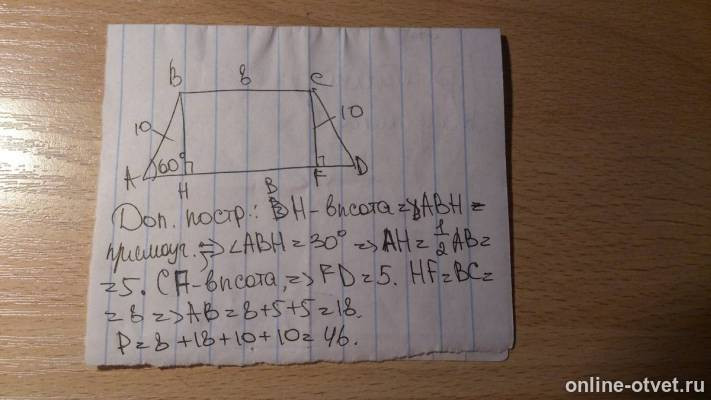 B 8 C
10 10
A 60° H 8 F D
Доп. постр.: BH-высота => ABH =
прямоуг. => ∠ABH = 30° => AH = 1/2 AB =
= 5. CF-высота, => FD = 5. HF = BC =
= 8 => AB = 8 + 5 + 5 = 18.
P = 8 + 18 + 10 + 10 = 46.
online-otvet.ru